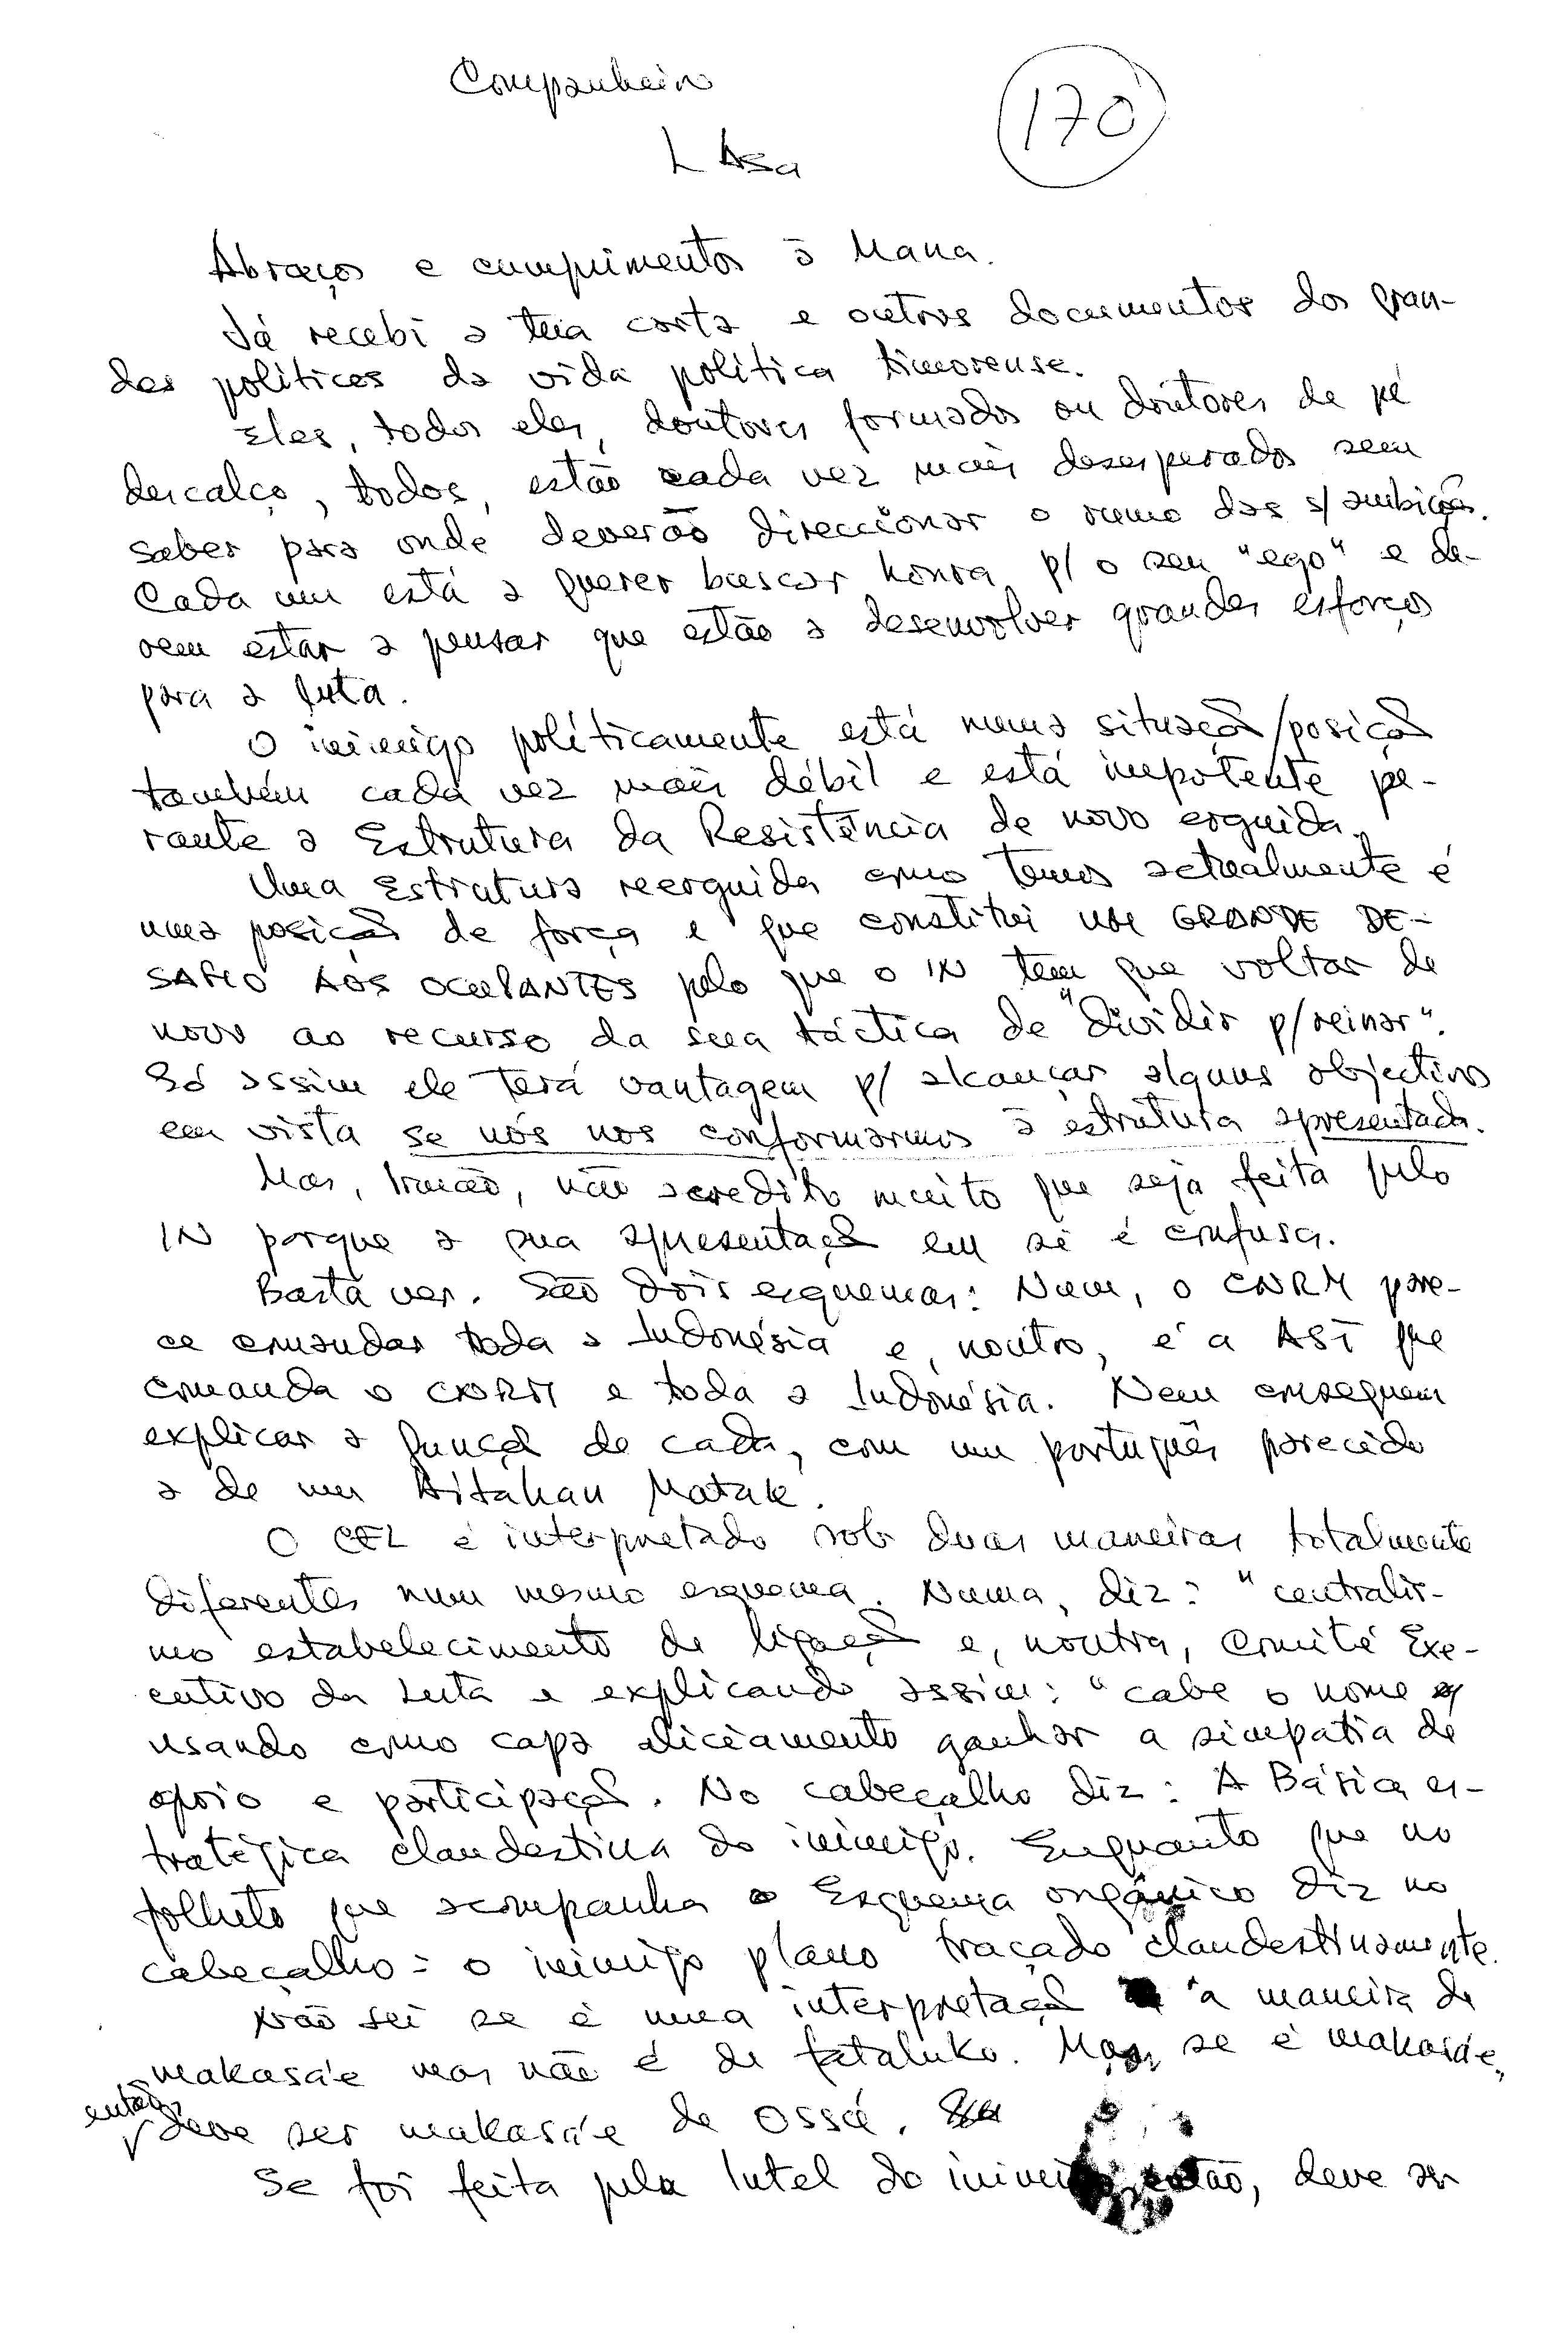 Companheiro
170
L Asa
Abraços e cumprimentos à Mana.
Já recebi a tua carta e outros documentos dos gran-
des politicos da vida política timorense.
Eles, todos eles, doutores formados ou doutores de pé
descalço, todos, estão cada vez mais desesperados sem
saber para onde deverão direccionar o rumo das s/ ambições.
Cada um está a querer buscar honra p/ o seu "ego" e de-
vem estar a pensar que estão a desenvolver grandes esforços
para a luta.
O inimigo políticamente está numa situação/posição
também cada vez mais débil e está impotente pe-
rante a Estrutura da Resistência de novo erguida.
Uma Estrutura reerguida como temos actualmente é
uma posição de força e que constitui um GRANDE DE-
SAFIO AOS OCUPANTES pelo que o IN tem que voltar de
novo ao recurso da sua táctica de "dividir p/reinar".
Só assim ele terá vantagem p/ alcançar alguns objectivos
em vista se nós nos conformarmos à estrutura apresentada.
Mas, Irmão, não acredito muito que seja feita pelo
IN porque a sua apresentação em si é confusa.
Basta ver. São dois esquemas: Num, o CNRM pare-
ce comandar toda a Indonésia e, noutro, é a AST que
comanda o CNRM e toda a Indonésia. Nem conseguem
explicar a função de cada, com um português parecido
a de um Aitahan Matak.
O CEL é interpretado sob duas maneiras totalmente
diferentes num mesmo esquema. Numa, diz: "centralis-
mo estabelecimento de ligação e, noutra, Comité Exe-
cutivo da Luta e explicando assim: "cabe o nome
usando como capa aliciamento ganhar a simpatia de
apoio e participação. No cabeçalho diz: A Básica es-
tratégica clandestina do inimigo. Enquanto que no
folheto que acompanha o Esquema orgânico diz no
cabeçalho: o inimigo plano traçado clandestinamente.
Não sei se é uma interpretação à maneira de
makasa'e mas não é de fataluko. Mas, se é makasa'e,
então, deve ser makasa'e de Ossú.
Se foi feita pela Intel do inimigo, então, deve ser